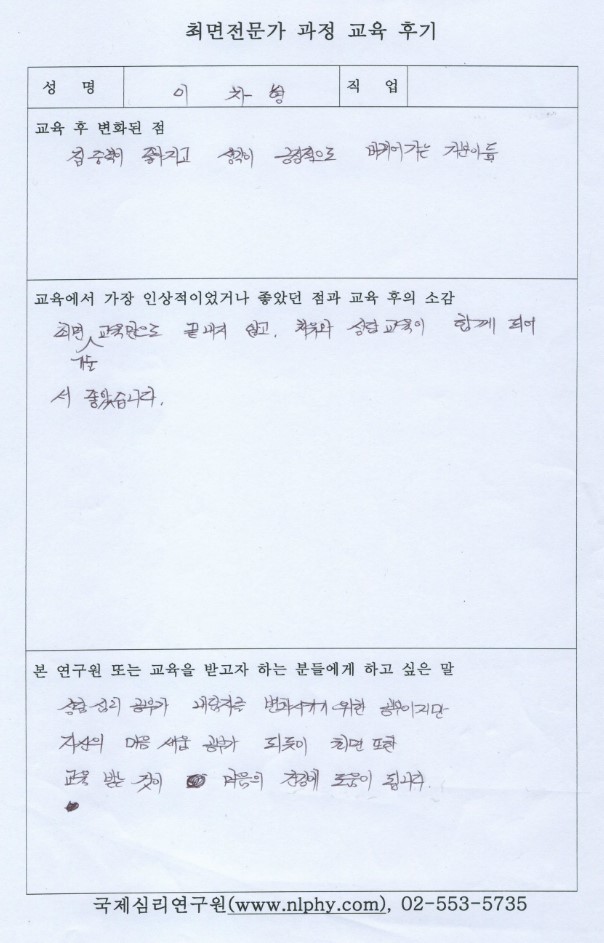 최면전문가 과정 교육 후기
성 명 이 차 형 직 업
교육 후 변화된 점
집중력이 좋아지고 생각이 긍정적으로 바뀌어가는 기분이 듬
교육에서 가장 인상적이었거나 좋았던 점과 교육 후의 소감
최면 교육만으로 끝내지 않고, 상담교육이 함께 되어
기술
서 좋았습니다.
본 연구원 또는 교육을 받고자 하는 분들에게 하고 싶은 말
상담심리 공부가 내담자를 변화시키기 위한 공부이지만
자신의 마음 공부가 되듯이 최면 또한
교육 받는 것이 마음의 건강에 도움이 됩니다.
국제심리연구원(www.nlphy.com), 02-553-5735